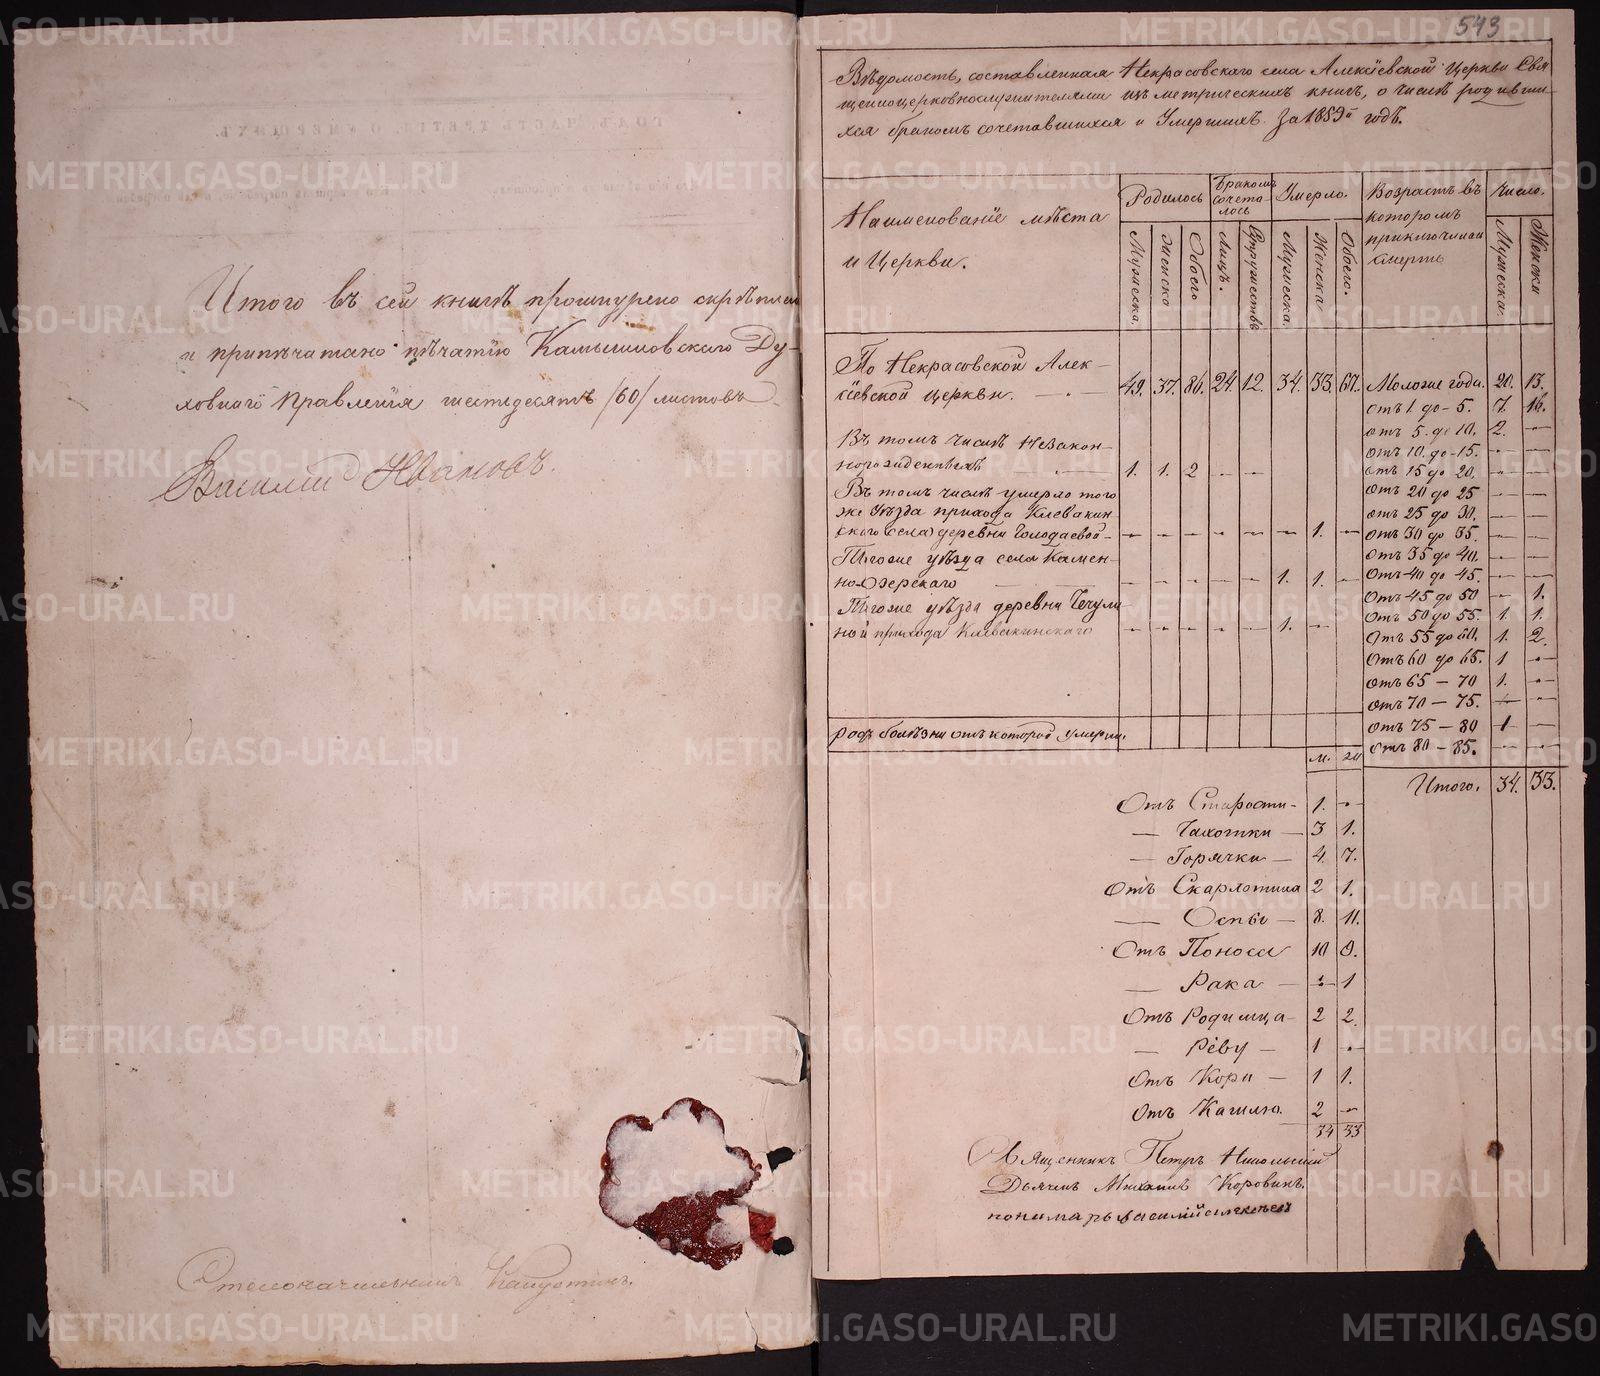 Итого въ сей книгѣ прошнурено скрѣплен
и припѣчатано пѣчатїю Камышловскаго Ду-
ховнаго Правленїя шестьдесятъ /60/ листовъ
Василий Ивановъ.
Столоначальникъ Капустинъ.
543
Вѣдомость, составленная Некрасовскаго села Алексїевской Церкви Свя
щенноцерковнослужителями изъ метрическихъ книгъ, о числѣ родивши-
хся бракомъ сочетавшихся и Умершихъ за 1859й годъ.
Наименованїе мѣста
и Церкви.
Родилось
Бракомъ сочета-лось
Умерло.
Возрастъ въ
которомъ
приключилась
смерть
Число.
Мужеска.
женска
Обоего
Лицъ.
Супружествъ
Мужеска.
Женска
Обоего.
Мужеска.
Женска
По Некрасовской Алек-
сїевской церкви. 49. 37. 86. 24. 12. 34. 33. 67.
Въ томъ числѣ Незакон-
норожденныхъ 1. 1. 2 - -
Въ томъ числѣ умерло того
же Уѣзда прихода Клевакин
скаго села деревни Голодаевой - - - - - - - 1. -
Тѣгоже уѣзда села Камен-
но-Озерскаго - - - - - 1. 1. -
Тѣгоже уѣзда деревни Чечули
ной прихода Клевакинскаго - - - - - 1. -
Моложе года. 20. 13.
отъ 1 до - 5. 7. 16.
отъ 5. до 10. 2. -
отъ 10. до -15. - -
отъ 15 до 20. - -
отъ 20 до 25 - -
отъ 25 до 30. - -
отъ 30 до 35. - -
отъ 35 до 40. - -
отъ 40 до 45. - -
отъ 45 до 50 - 1.
отъ 50 до 55. 1. 1.
отъ 55 до 60. 1. 2.
отъ 60 до 65. 1 -
отъ 65 - 70 1. -
отъ 70 - 75. - -
отъ 75 - 80 1 -
отъ 80 - 85. - -
Итого. 34. 33.
родъ болѣзни отъ которой умерли.
м. ж
Отъ Старости- 1. -
— Чахотки — 3 1.
— Горячки — 4. 7.
Отъ Скарлотина 2 1.
— Оспы — 8. 11.
Отъ Поноса 10 9.
— Рака — - 1
Отъ Родимца- 2 2.
— Рёву — 1 -
Отъ Кори — 1 1.
Отъ Кашлю. 2 -
34 33
Священникъ Петръ Никольский
Дьячекъ Михаилъ Коровинъ.
пономарь василїй алексеев
METRIKI.GASO-URAL.RU